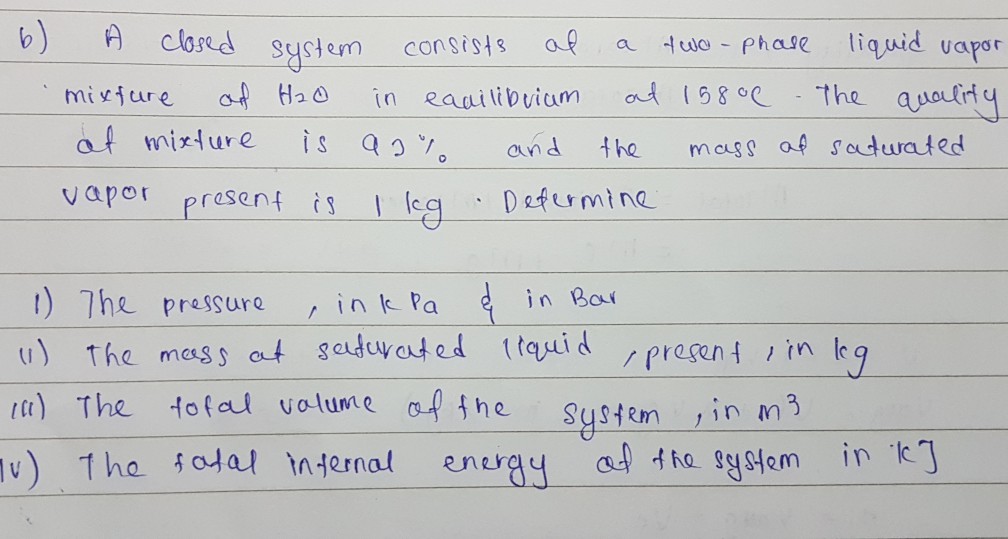 b) A closed system consists of a two-phase liquid vapor
mixture of H2O in equilibrium at 158°C. The quality
of mixture is 93% and the mass of saturated
vapor present is 1 kg. Determine
i) The pressure, in k Pa & in Bar
ii) The mass of saturated liquid, present, in kg
iii) The total volume of the system, in m3
iv) The total internal energy of the system in kJ